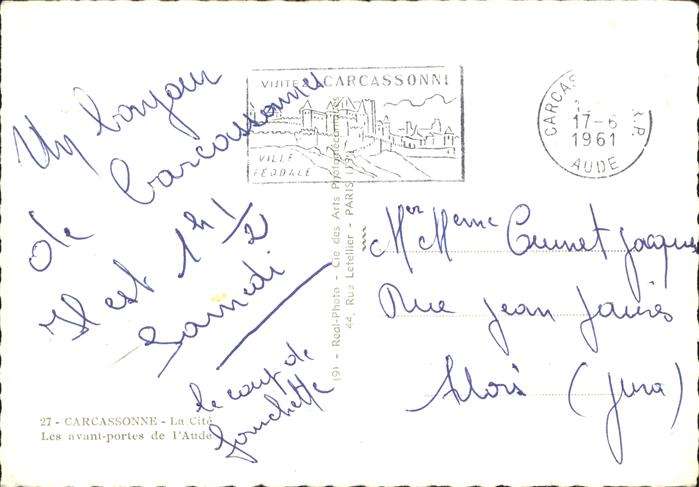 Un bonjour
de Carcassonne
Il est 1h 1/2
Samedi
le coup de
fourchette
27 - CARCASSONNE - La Cité
Les avant-portes de l'Aude
VISITEZ CARCASSONNE
VILLE
FÉODALE
CARCAS
17-6
1961
AUDE
R.P.
Real-Photo - Cie des Arts Photomécaniques
44, Rue Letellier - PARIS
Mer Meme Cunet Jacques
Rue Jean Jaurès
(Jura)